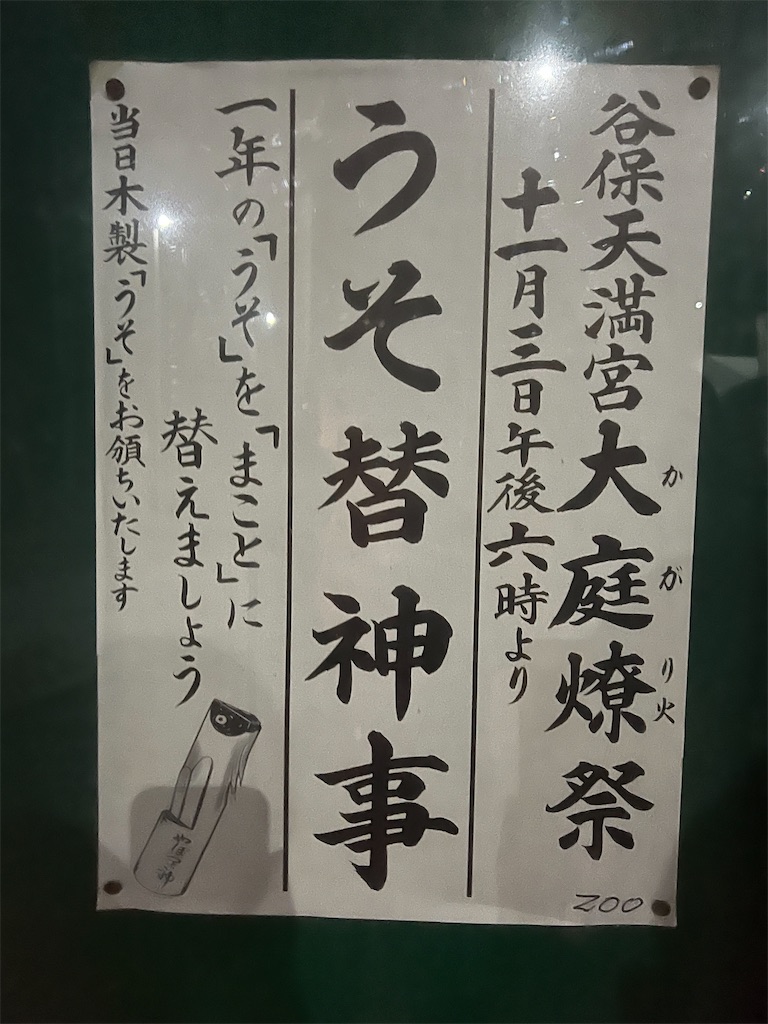 谷保天満宮大庭燎祭
かがり火
十一月三日午後六時より
うそ替神事
一年の「うそ」を「まこと」に
替えましょう
当日木製「うそ」をお頒ちいたします
ZOO